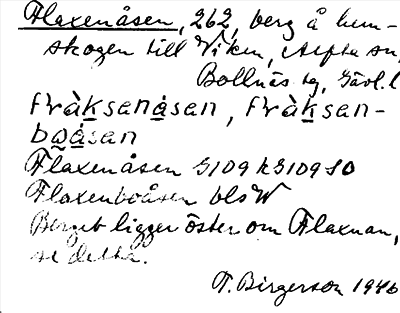 Flaxenåsen, 262, berg å hem-
skogen till Viken, Alfta sn,
Bollnäs tg, Gävl. l
fràksenåsen, fràksen-
bǫåsen
Flaxenåsen G109 h G109 SO
Flaxenboåsen bl5 W
Berget ligger öster om Flaxnan,
se detta.
T. Birgerson 1946